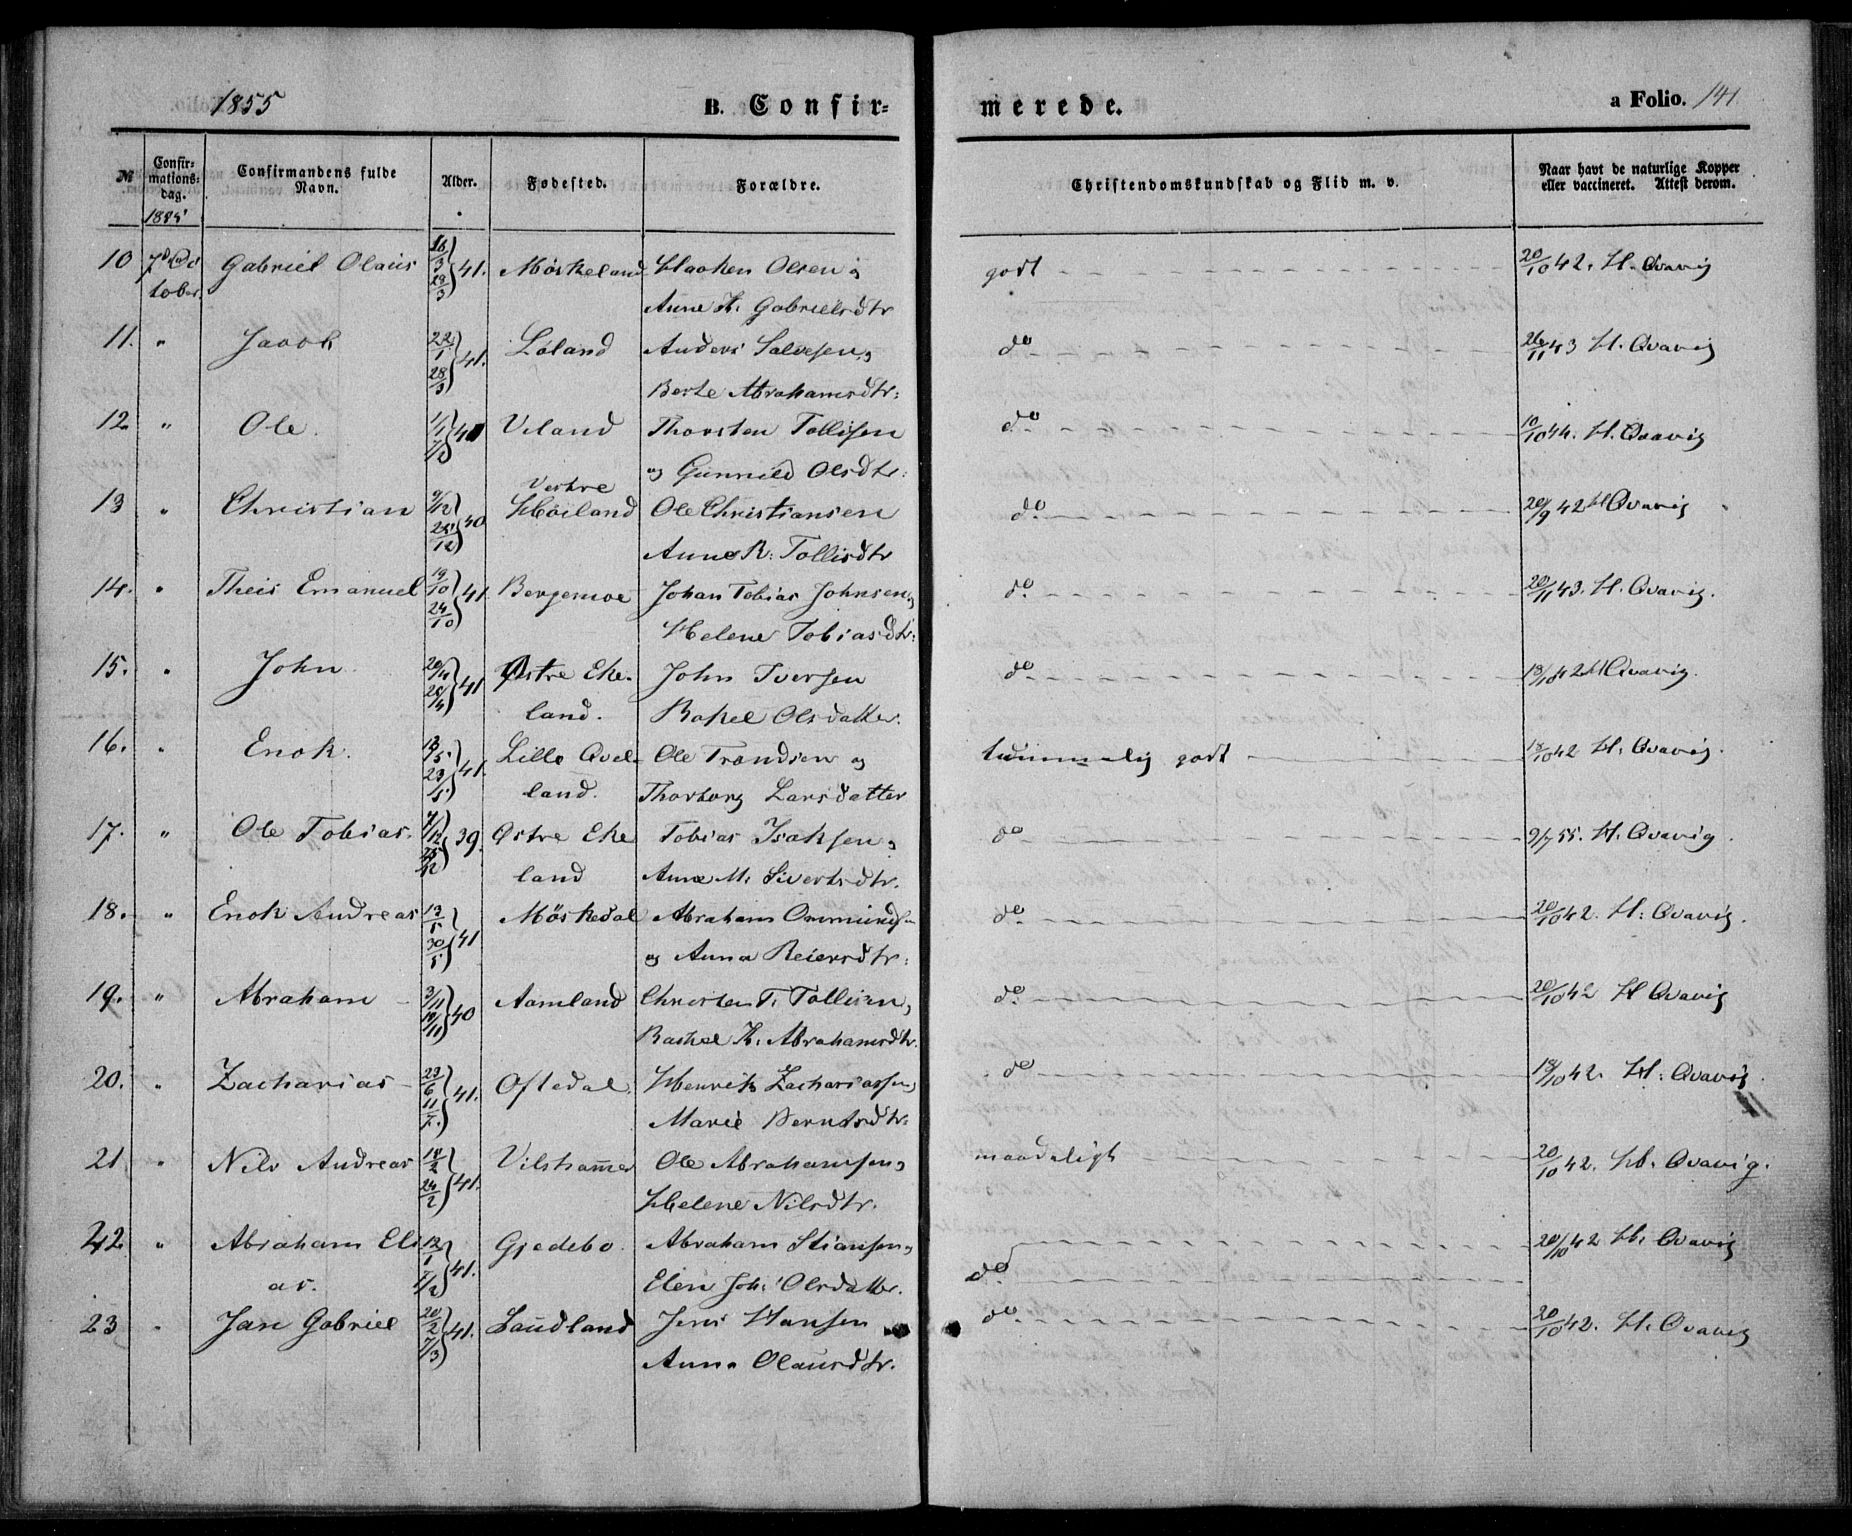 1855 B. Confir= merede. a Folio. 141.
№ Confir-mations-dag. Confirmandens fulde Navn. Alder. Fødested. Forældre. Christendomskundskab og Flid m. v. Naar havt de naturlige Kopper eller vaccineret. Attest derom.
1855
10 7de Oc Gabriel Olaus 16/3 41. Møskeland Haaken Olsen og godt 20/10 42. H. Qvavig
tober. 29/3 Anne K. Gabrielsdtr
11. " Jacob 22/1 41. Løland Anders Salvesen og do 26/11 43 H. Qvavig
28/3 Berte Abrahamsdtr:
12. " Ole. 1/1 41 Viland Thorsten Tollisen do 10/10 44. H. Qvavig
og Gunnild Olsdtr:
13 " Christian 9/12 40 Vestre Høiland Ole Christiansen do 20/9 42 H Qvavig
25/12 Anne R: Tollisdtr
14. " Theis Emanuel 19/10 41 Bergemoe Johan Tobias Johnsen og do 20/11 43. H. Qvavig.
24/10 Helene Tobiasdtr:
15. " John 20/4 41 Østre Eke- John Iversen do 18/10 42 H Qvavig.
land. Rakel Olsdatter.
16. " Enok. 41. Lille Qvel- Ole Trondsen og temmelig godt 18/10 42 H. Qvavig.
23/5 land. Thorborg Larsdatter
17. " Ole Tobias. 7/12 39. Østre Eke Tobias Isaksen og do 9/7 55. H. Qvavig.
25/12 land Anne M. Sivertsdtr.
18. " Enok Andreas 13/5 41 Møskedal Abraham Ommundsen do 20/10 42. H: Qvavig.
30/5 og Anna Reiersdtr:
19. " Abraham 3/11 40 Aamland Christen T. Tollisen og do 20/10 42 H Qvavig
Rachel K. Abrahamsdtr.
20. " Zacharias 23/6 41. Oftedal Henrik Zachariassen og do 18/10 42. H: Qvavig.
11/7. Marie Berntsdtr:
21 " Nils Andreas 18/2 41. Vilshammer Ole Abrahamsen og maadeligt 20/10 42. H. Qvavig.
24/2 Helene Nilsdtr.
22 " Abraham Eli 12/1 41. Gjedebo. Abraham Stiansen og do 20/10 42 H. Qvavig
as. 7/2 Elen Joh: Olsdatter.
23 " Jan Gabriel 20/2 41. Laudland Jens Hansen do 20/10 42. H. Qvavig
7/3 Anna Olausdtr.